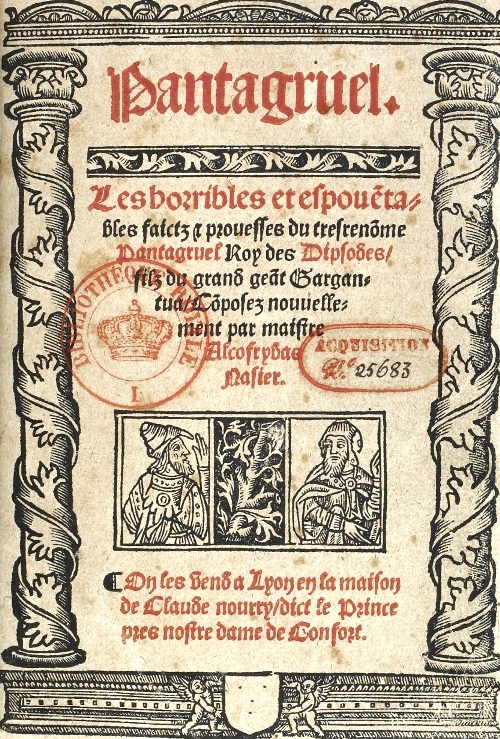 Pantagruel.
Les horribles et espouẽta-
bles faictz ⁊ prouesses du tresrenõme
Pantagruel Roy des Dipsodes/
filz du grand geãt Gargan-
tua/ Cõposez nouuelle-
ment par maistre
Alcofrybas
Nasier.
BIBLIOTHEQUE
L
ACQUISITION
25683
¶On les vend a Lyon en la maison
de Claude nourry/ dict le Prince
pres nostre dame de Confort.